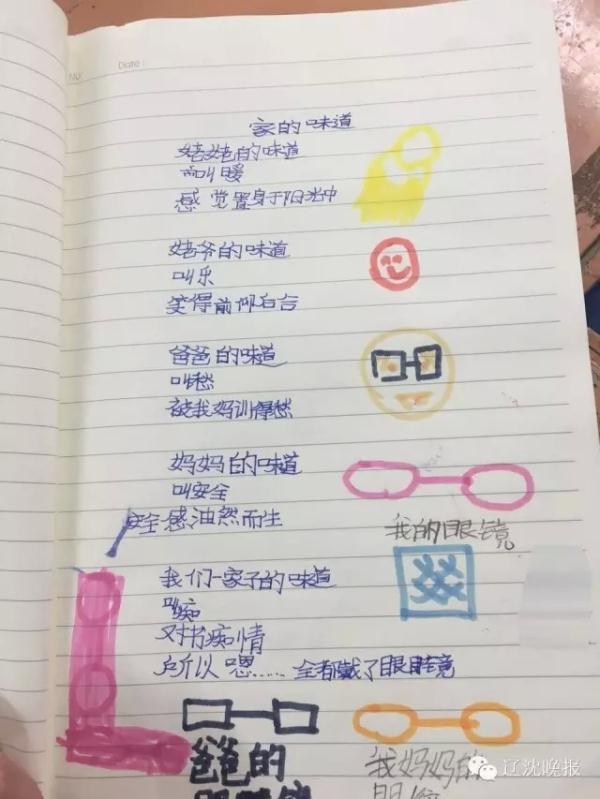 NO
Date :
家的味道
姥姥的味道
叫暖
感觉置身于阳光中
姥爷的味道
叫乐
笑得前仰后合
爸爸的味道
叫愁
被我妈训得愁
妈妈的味道
叫安全
安全感油然而生
我的眼镜
我们一家子的味道
叫痴
对书痴情
所以嗯……全都戴了眼睛镜
爸爸的
眼镜
我妈妈的
眼镜
辽沈晚报